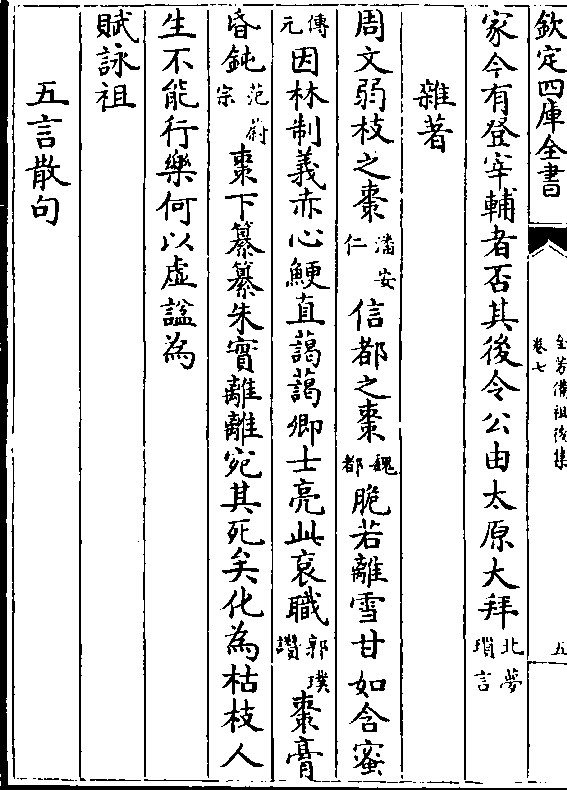 欽定四庫全書
全芳備祖後集
卷七
五
家今有登宰輔者否其後令公由太原大拜北夢瑣言
雜著
周文弱枝之棗潘安仁信都之棗魏都脆若離雪甘如含蜜
傅元因林制義赤心鯁直藹藹卿士亮此衮職郭璞讚棗膏
昏鈍范蔚宗棗下纂纂朱實離離宛其死矣化為枯枝人
生不能行樂何以虛諡為
賦詠祖
五言散句